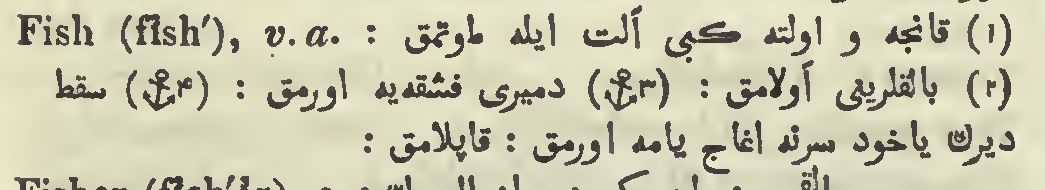 Fish (fĭsh′), v. a. : (۱) قانجه و اولته كبی آلت ايله طوتمق
(۲) بالقلریی آولامق : (⚓۳) دمیری فشقه‌یه اورمق : (⚓۴) سقط
دیرك یاخود سرنه اغاج یامه اورمق : قاپلامق :